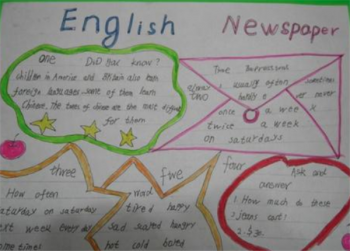 English Newspaper
one Did you know?
children in America and Britain also learn
foreign languages. some of them learn
Chinese. The tones of chinese are the most
for them
Time Expressions
TWO usually often sometimes
never
once a week
twice a week
on saturdays
three
How often
saturday on saturday
next week
sometimes
five
tired happy
sad scared hungry
hot cold bored
four
Ask and
answer
1. How much is these